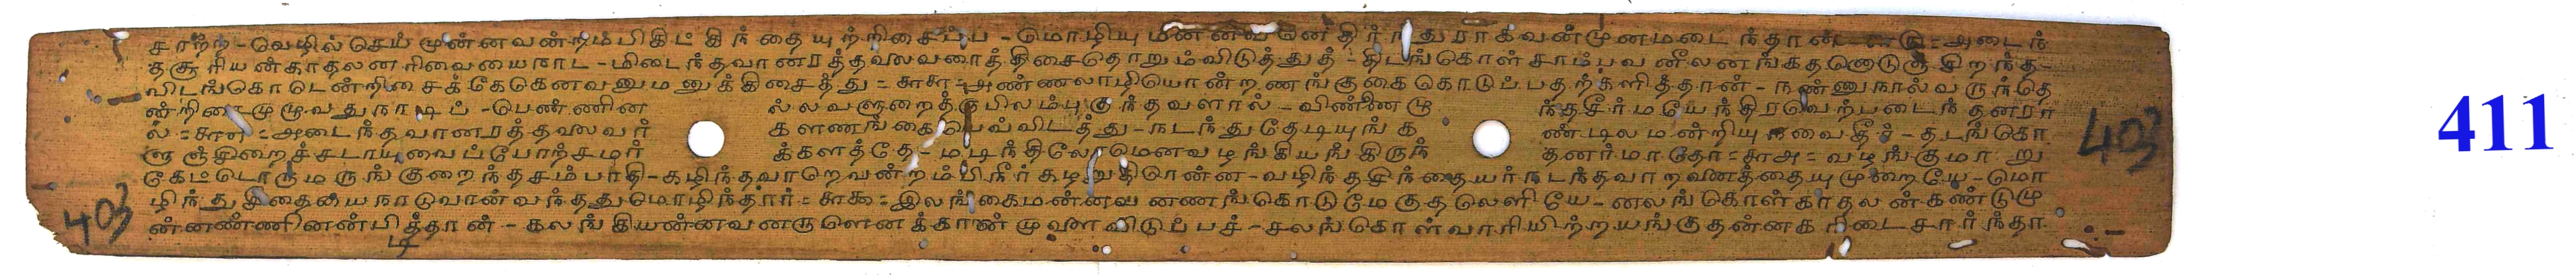 சாற்ற - வெழில் செய் முன்னவன்றம்பிகிட் கிந்தையுற்றிசைப்ப - மொழியு மன்னவன் துராகவன்முனமடைந்தான் = அடைந்
தசூரியன்காதலனரிவையைநாட - மிடைந்தவானரத்தலைவரைத்திசைதொறும்விடுத்துத் - திடங்கொள்சாம்பவனீலனங்கதனொடுஞ்சிறந்த -
விடங்கொடென்றிசைக்கேகெனவனுமனுக்கிசைத்து = ௬௬ = அண்ணலாழியொன்றணங்குகைகொடுப்பதற்களித்தான் - நண்ணுநால்வருந்தெ
ன்றிசைமுழுவதுநாடிப் - பெண்ணின ல்லவளுறைத்தபிலம்புகுந்தவளால் - விண்ணிடை ந்தசீர்மயேந்திரவெற்படைந்தனரா
ல் = ௬௭ = அடைந்தவானரத்தலைவர் களணங்கையெவ்விடத்து - நடந்துதேடியுங்க ண்டிலமன்றியுநவைதீர் - தடங்கொ
ளுஞ்சிறைச்சடாயுவைப்போற்சமர் க்களத்தே - மடிந்திலோமெனவழங்கியங்கிருந் தனர்மாதோ = ௬௮ = வழங்குமா று
கேட்டொருமருங்குறைந்தசம்பாதி - கழிந்தவாறெவன்றம்பிநீர்கழறுதிரென்ன - வழிந்தசிந்தையர்நடந்தவாறனைத்தையுமுறையே - மொ
ழிந்துசீதையைநாடுவான்வந்ததுமொழிந்தார் = ௬௯ = இலங்கைமன்னவ னணங்கொடுமேகுதலெளியே - னலங்கொள்காதலன்கண்டுமு
ன்னண்ணினன்பித்தான் - கலங்கியன்னவனருளெனக்காண்முவளவிடுப்பச் - சலங்கொள்வாரியிற்றயங்குதன்னகரிடைசார்ந்தா
403
403
411